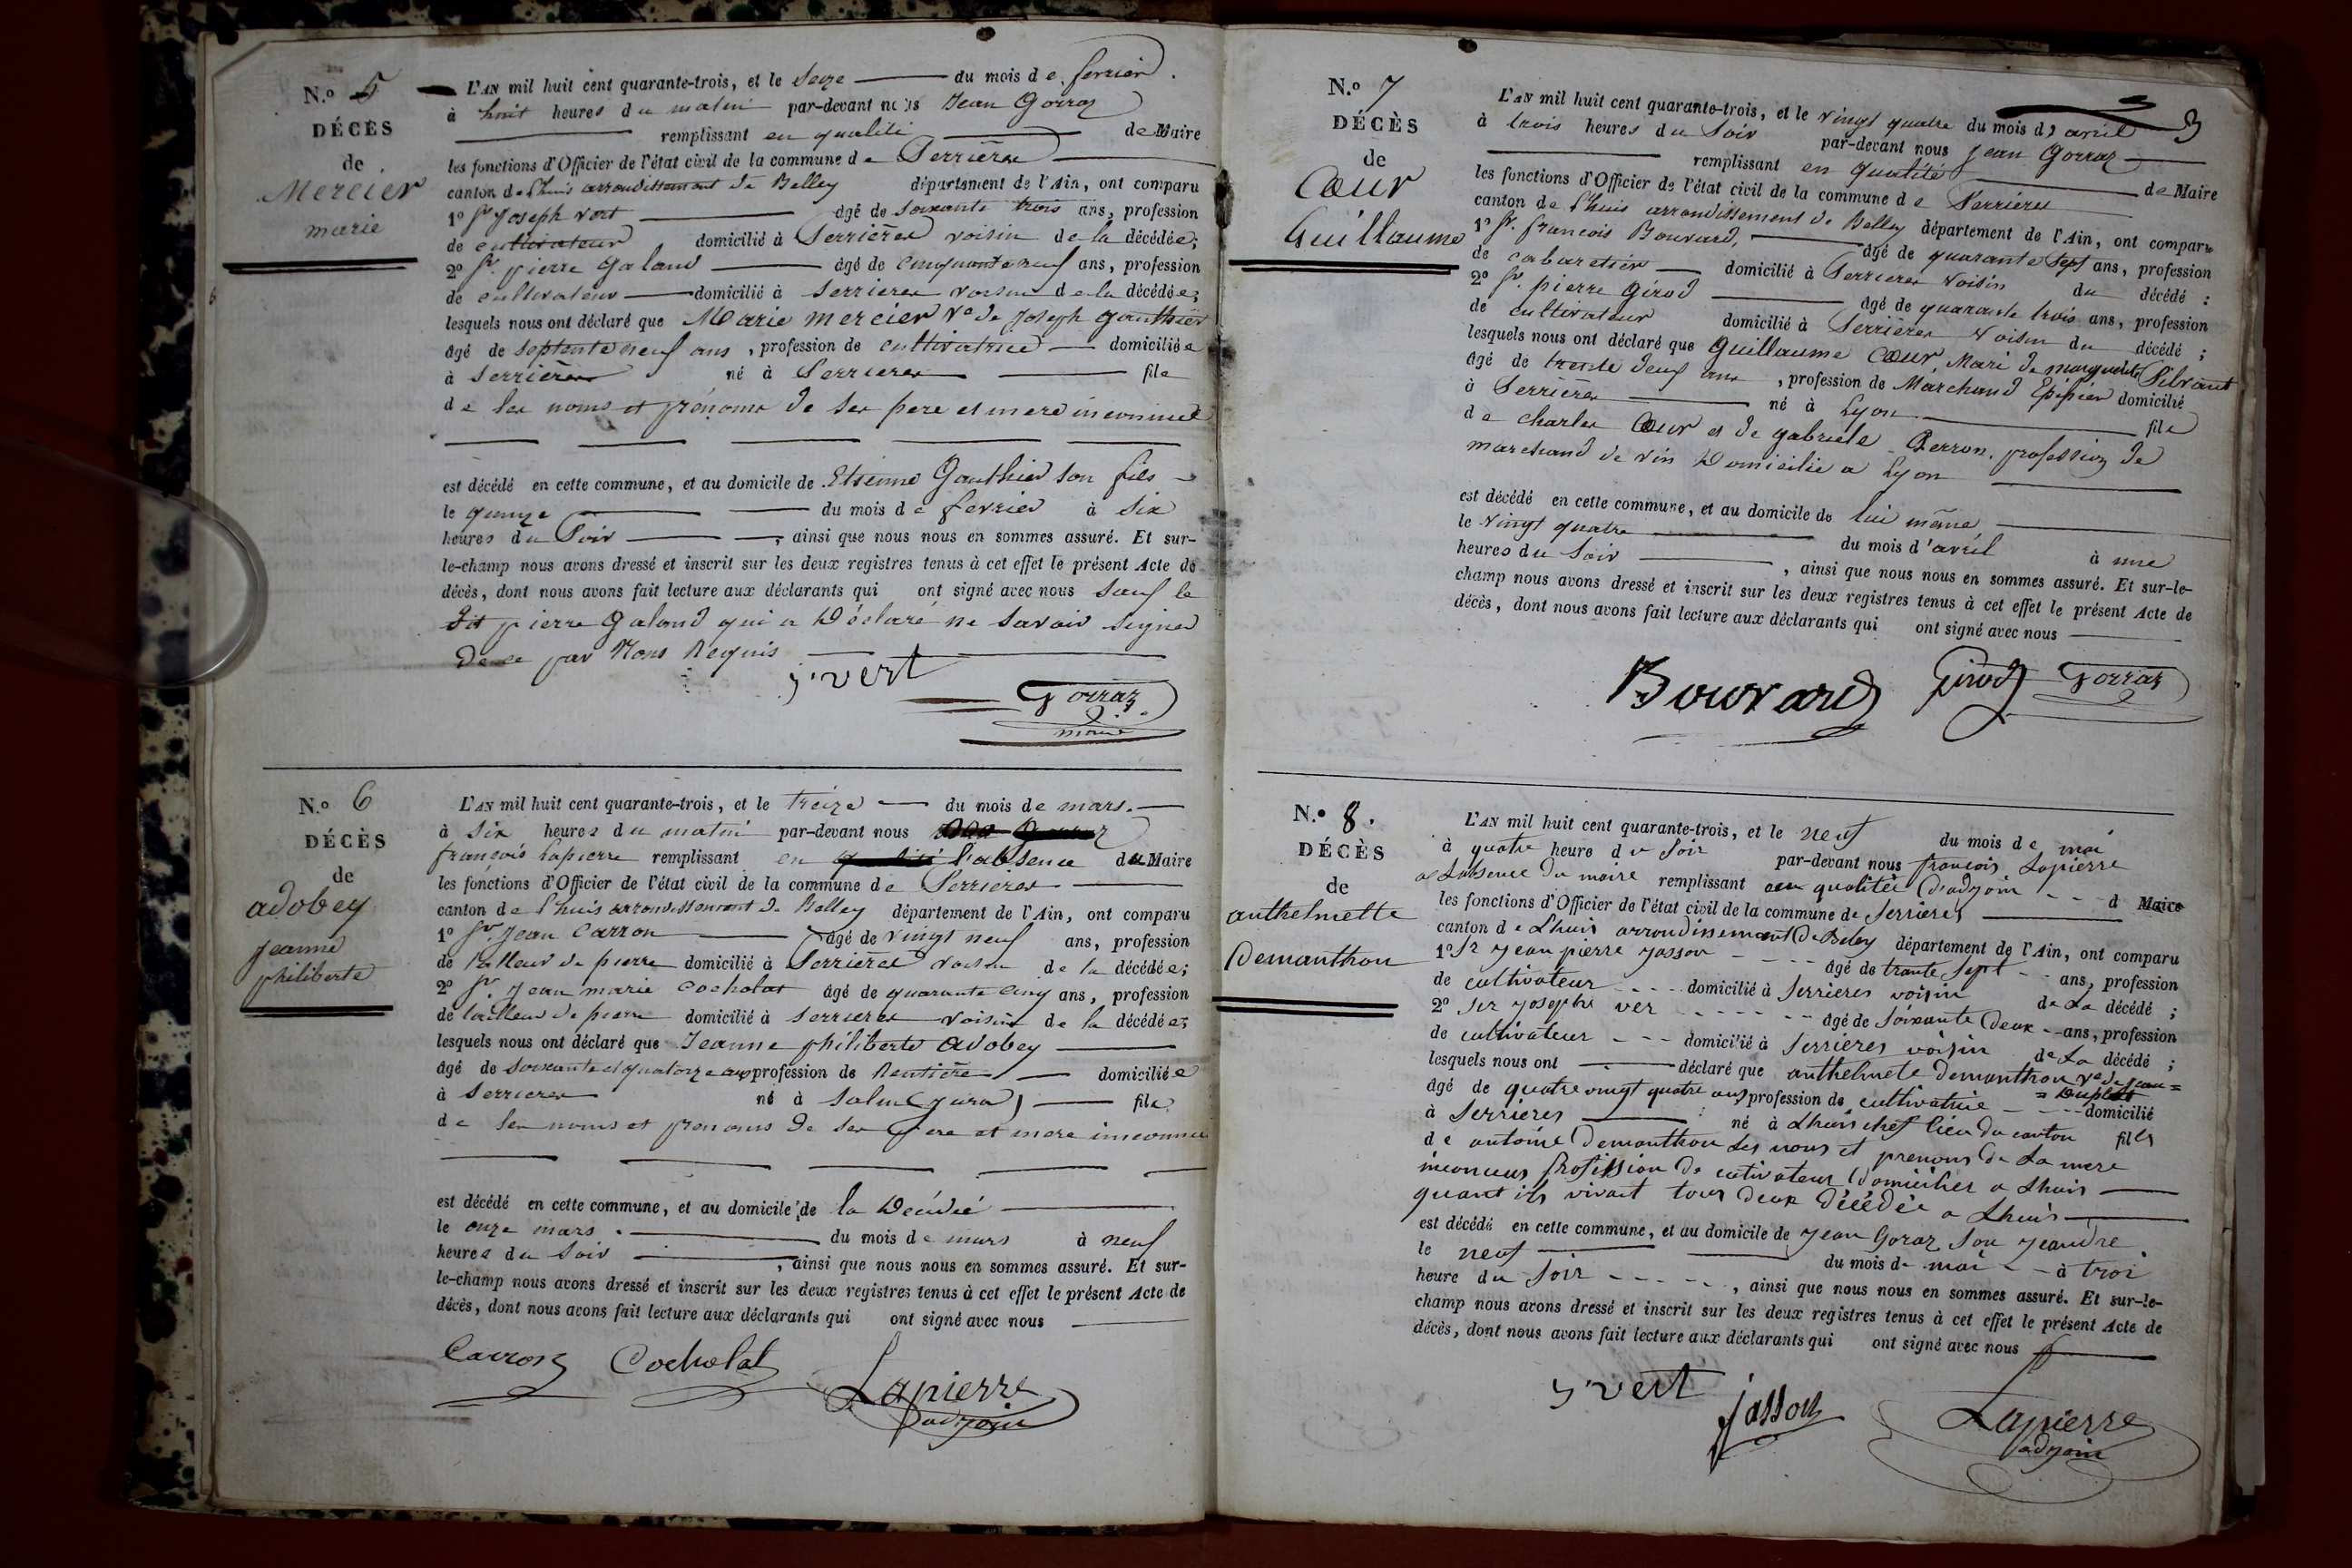 N.º 5
DÉCÈS
de
Mercier
marie
L'AN mil huit cent quarante-trois, et le Seize du mois de fevrier.
à huit heures du matin par-devant nous Jean Gorraz
remplissant en qualité de Maire
les fonctions d'Officier de l'état civil de la commune de Serrières
canton de Lhuis arrondissement de Belley département de l'Ain, ont comparu
1º Sr joseph vert âgé de soixante trois ans, profession
de cultivateur domicilié à Serrières voisin de la décédée;
2º Sr. pierre Galand âgé de cinquante neuf ans, profession
de cultivateur domicilié à serrieres voisin de la décédée;
lesquels nous ont déclaré que Marie mercier Ve de Joseph gauthier
âgé de septente neuf ans, profession de cultivatrice domiciliée
à Serrières né à Serrieres file
de les noms et prénoms de ses pere et mere inconnue
est décédé en cette commune, et au domicile de Etienne Gauthier son fils
le quinze du mois de fevrier à six
heures du Soir, ainsi que nous nous en sommes assuré. Et sur-
le-champ nous avons dressé et inscrit sur les deux registres tenus à cet effet le présent Acte de
décès, dont nous avons fait lecture aux déclarants qui ont signé avec nous sauf le
dit pierre Galand qui a Déclaré ne savoir signer
de ce par Nous Requis
j. vert
Gorraz
maire
N.º 6
DÉCÈS
de
adobey
jeanne
philiberte
L'AN mil huit cent quarante-trois, et le treize du mois de mars.
à six heures du matin par-devant nous
françois Lapierre remplissant en l'absence du Maire
les fonctions d'Officier de l'état civil de la commune de Serrieres
canton de Lhuis arrondissement de Belley département de l'Ain, ont comparu
1º Sr. Jean Carron âgé de vingt neuf ans, profession
de tailleur de pierre domicilié à Serrières voisin de la décédée;
2º Sr Jean marie Cocholat âgé de quarante cinq ans, profession
de tailleur de pierre domicilié à serrieres voisin de la décédée;
lesquels nous ont déclaré que Jeanne philiberte adobey
âgé de soixante et quatorze ans profession de Rentière domiciliée
à serrieres né à Salin (jura) file
de les noms et prenoms de ses pere et mere inconnue
est décédé en cette commune, et au domicile de la Décédée
le onze mars. du mois de mars à neuf
heures du soir, ainsi que nous nous en sommes assuré. Et sur-
le-champ nous avons dressé et inscrit sur les deux registres tenus à cet effet le présent Acte de
décès, dont nous avons fait lecture aux déclarants qui ont signé avec nous
Carron Cocholat
Lapierre
adjoin
N.º 7
DÉCÈS
de
Cœur
Guillaume
L'AN mil huit cent quarante-trois, et le vingt quatre du mois d'avril
à trois heures du Soir par-devant nous jean Gorraz
remplissant en qualité de Maire
les fonctions d'Officier de l'état civil de la commune de Serrieres
canton de Lhuis arrondissement de Belley département de l'Ain, ont comparu
1º Sr. francois Bouvard, âgé de quarante Sept ans, profession
de cabaretier domicilié à Serrieres voisin du décédé;
2º Sr. pierre Girod âgé de quarante trois ans, profession
de cultivateur domicilié à Serrières voisin du décédé;
lesquels nous ont déclaré que Guillaume Cœur, Mari de marguerite
âgé de trente deux ans, profession de Marchand Épipier domicilié
à Serrières né à Lyon file
de charles Cœur et de gabriele Perron. profession de
marchand de vin Domicilié a Lyon
est décédé en cette commune, et au domicile de lui même
le vingt quatre du mois d'avril à une
heures du Soir, ainsi que nous nous en sommes assuré. Et sur-le-
champ nous avons dressé et inscrit sur les deux registres tenus à cet effet le présent Acte de
décès, dont nous avons fait lecture aux déclarants qui ont signé avec nous
Bouvard Girod Gorraz
N.º 8.
DÉCÈS
de
anthelmette
Demanthon
L'AN mil huit cent quarante-trois, et le neuf du mois de mai
à quatre heure du Soir par-devant nous francois Lapierre
a Labsence du maire remplissant en qualitée d'adjoin d Maire
les fonctions d'Officier de l'état civil de la commune de Serrieres
canton de Lhuis arrondissement de Beley département de l'Ain, ont comparu
1º Sr jean pierre Jasson âgé de trante sept ans, profession
de cultivateur domicilié à Serrieres voisin de La décédé;
2º Ser josephe ver âgé de Soixante Deux ans, profession
de cultivateur domicilié à Serrieres voisin de La décédé;
lesquels nous ont déclaré que anthelmete Demanthon Ve de jean =
= Duplat
âgé de quatre vingt quatre ans profession de cultivatrice domicilié
à Serrieres né à Lhuis chef lieu du canton files
de antoine Demanthon Les nons et prenons de La mere
inconnus profission de cutivateur Domicilier a Lhuis
quant ils vivait tous deux Décédée a Lhuis
est décédé en cette commune, et au domicile de jean Goraz Son jeandre
le neuf du mois de mai à troi
heure du Soir, ainsi que nous nous en sommes assuré. Et sur-le-
champ nous avons dressé et inscrit sur les deux registres tenus à cet effet le présent Acte de
décès, dont nous avons fait lecture aux déclarants qui ont signé avec nous
j. vert
jasson
Lapierre
adjoin